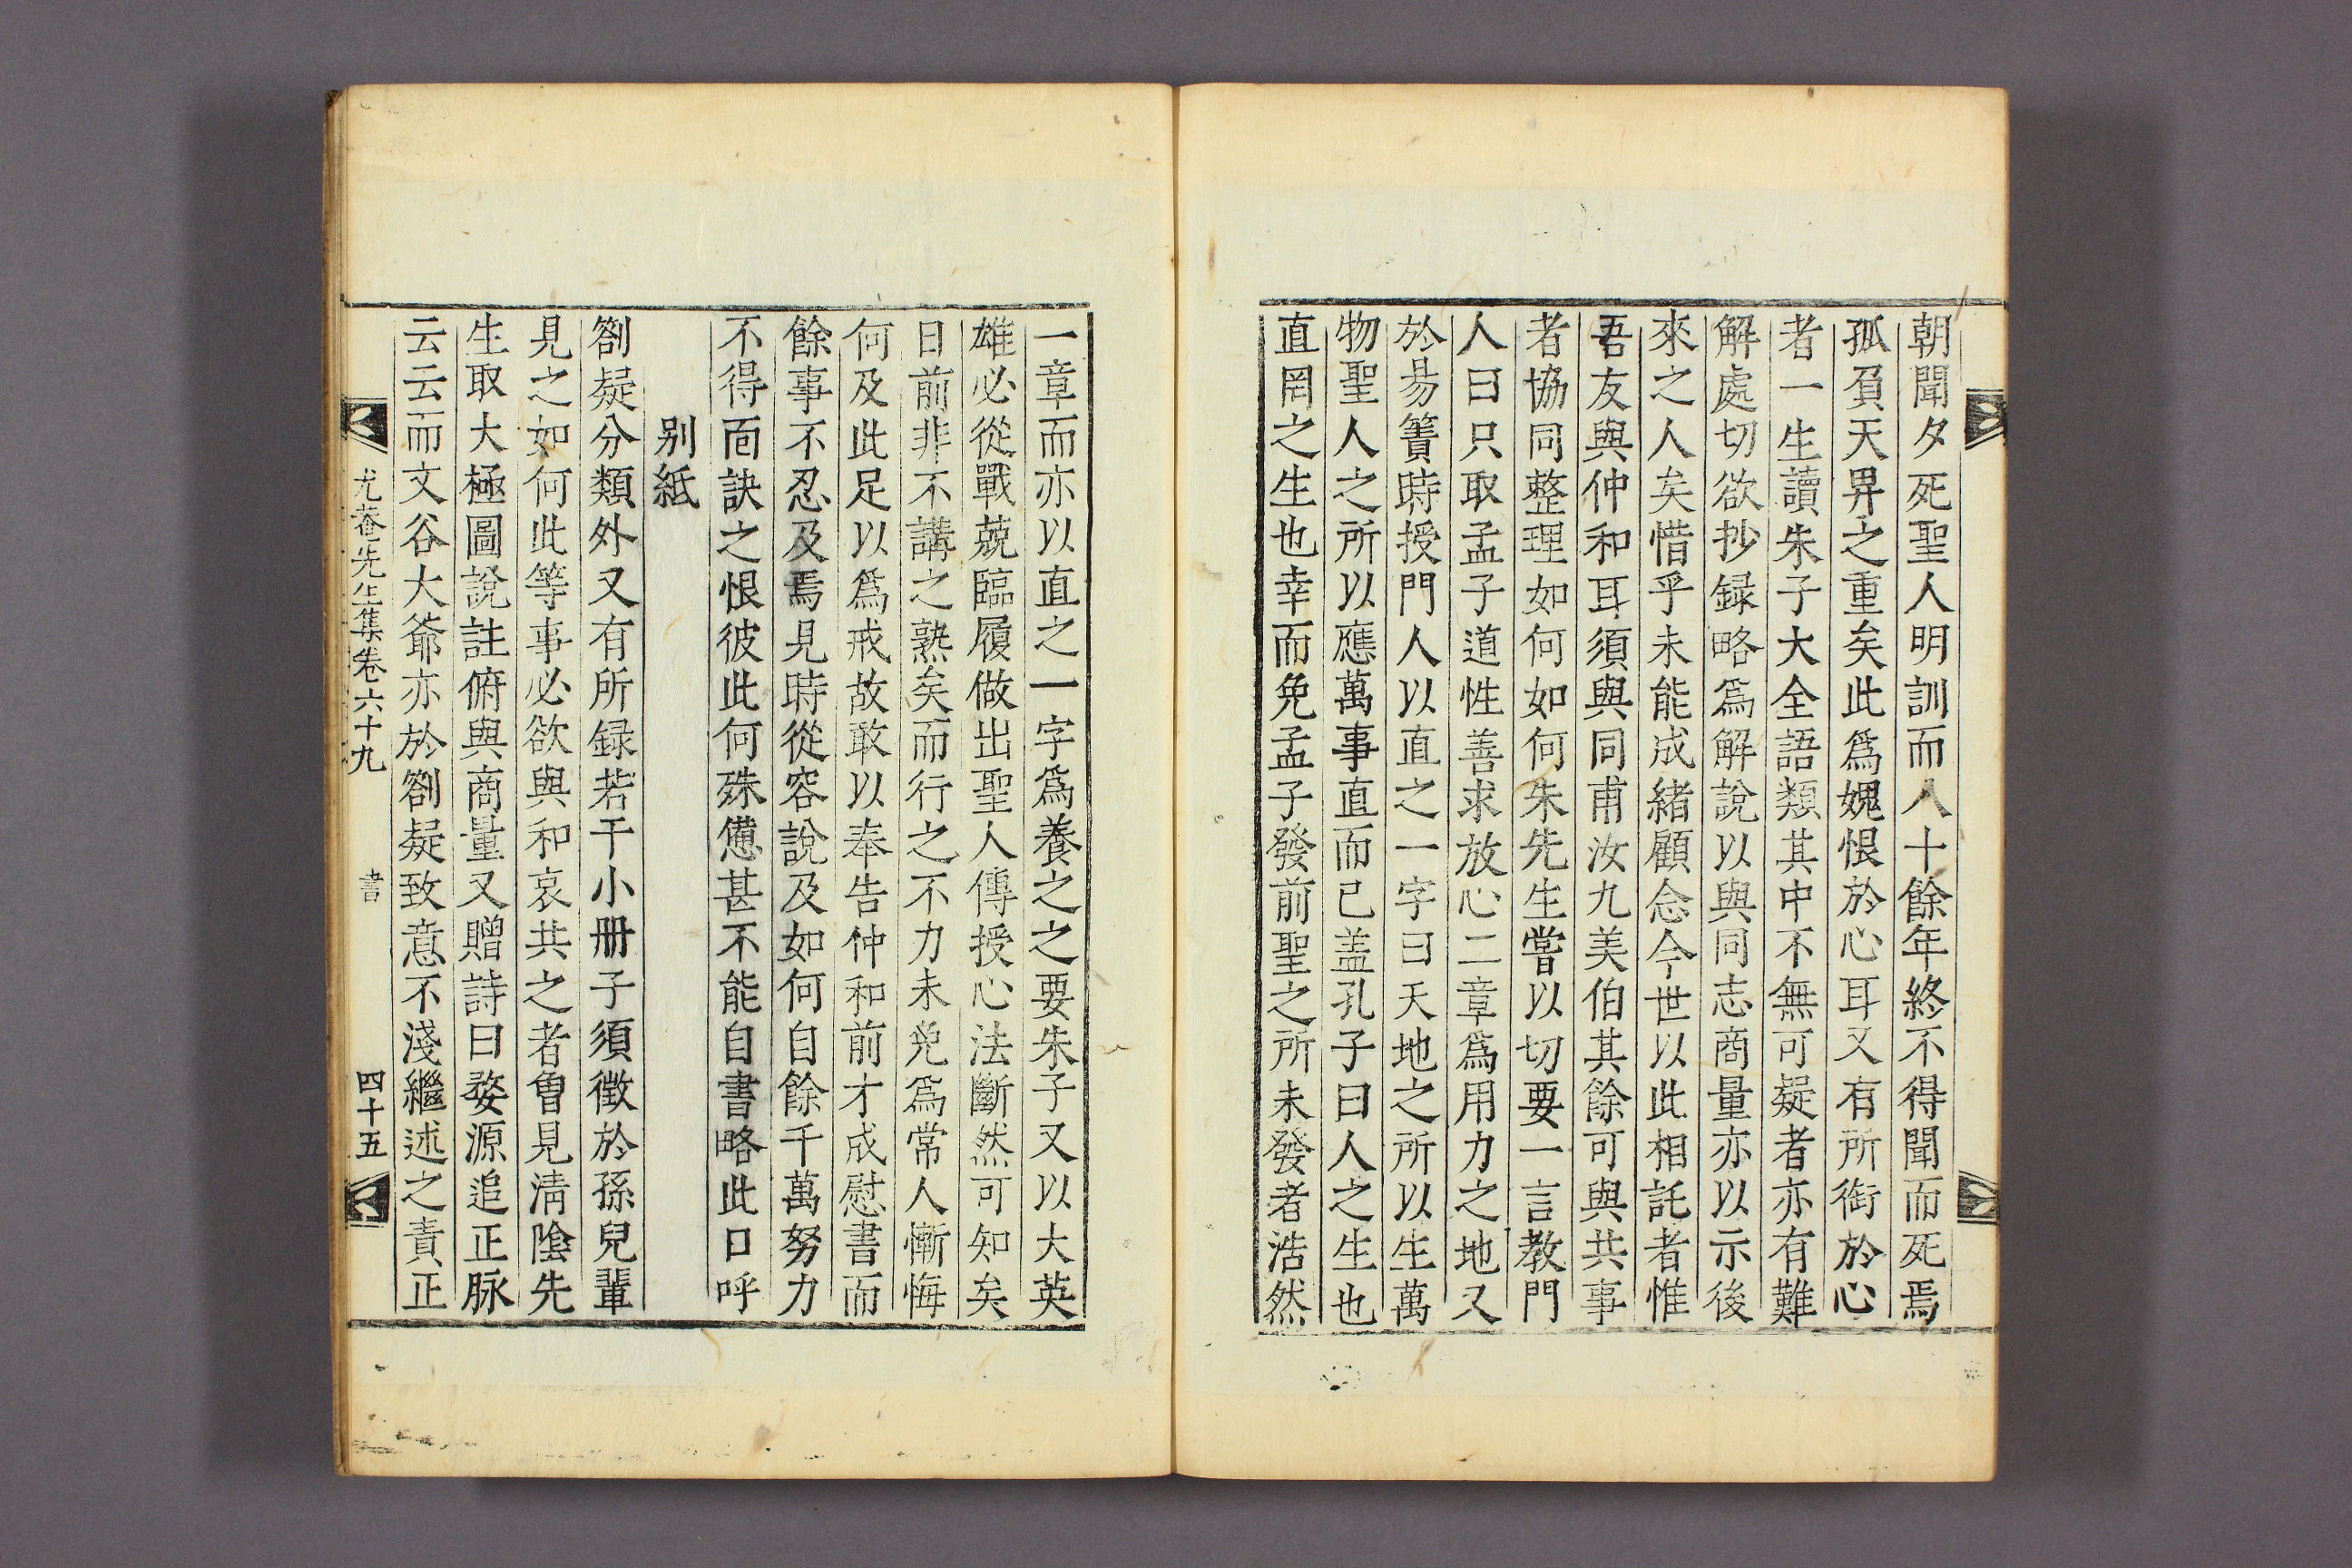 朝聞夕死聖人明訓而八十餘年終不得聞而死焉
孤負天畀之重矣此爲媿恨於心耳又有所衘於心
者一生讀朱子大全語類其中不無可疑者亦有難
解處切欲抄録略爲解說以與同志商量亦以示後
來之人矣惜乎未能成緒顧念今世以此相託者惟
吾友與仲和耳須與同甫汝九美伯其餘可與共事
者協同整理如何如何朱先生嘗以切要一言教門
人曰只取孟子道性善求放心二章爲用力之地又
於易簀時授門人以直之一字曰天地之所以生萬
物聖人之所以應萬事直而已盖孔子曰人之生也
直罔之生也幸而免孟子發前聖之所未發者浩然
一章而亦以直之一字爲養之之要朱子又以大英
雄必從戰兢臨履做出聖人傳授心法斷然可知矣
日前非不講之熟矣而行之不力未免爲常人慚悔
何及此足以爲戒故敢以奉告仲和前才成慰書而
餘事不忍及焉見時從容說及如何自餘千萬努力
不得面訣之恨彼此何殊憊甚不能自書略此口呼
别紙
劄疑分類外又有所録若干小册子須徵於孫兒輩
見之如何此等事必欲與和哀共之者曾見淸陰先
生取大極圖說註俯與商量又贈詩曰婺源追正脉
云云而文谷大爺亦於劄疑致意不淺繼述之責正
尤菴先生集卷六十九 書 四十五